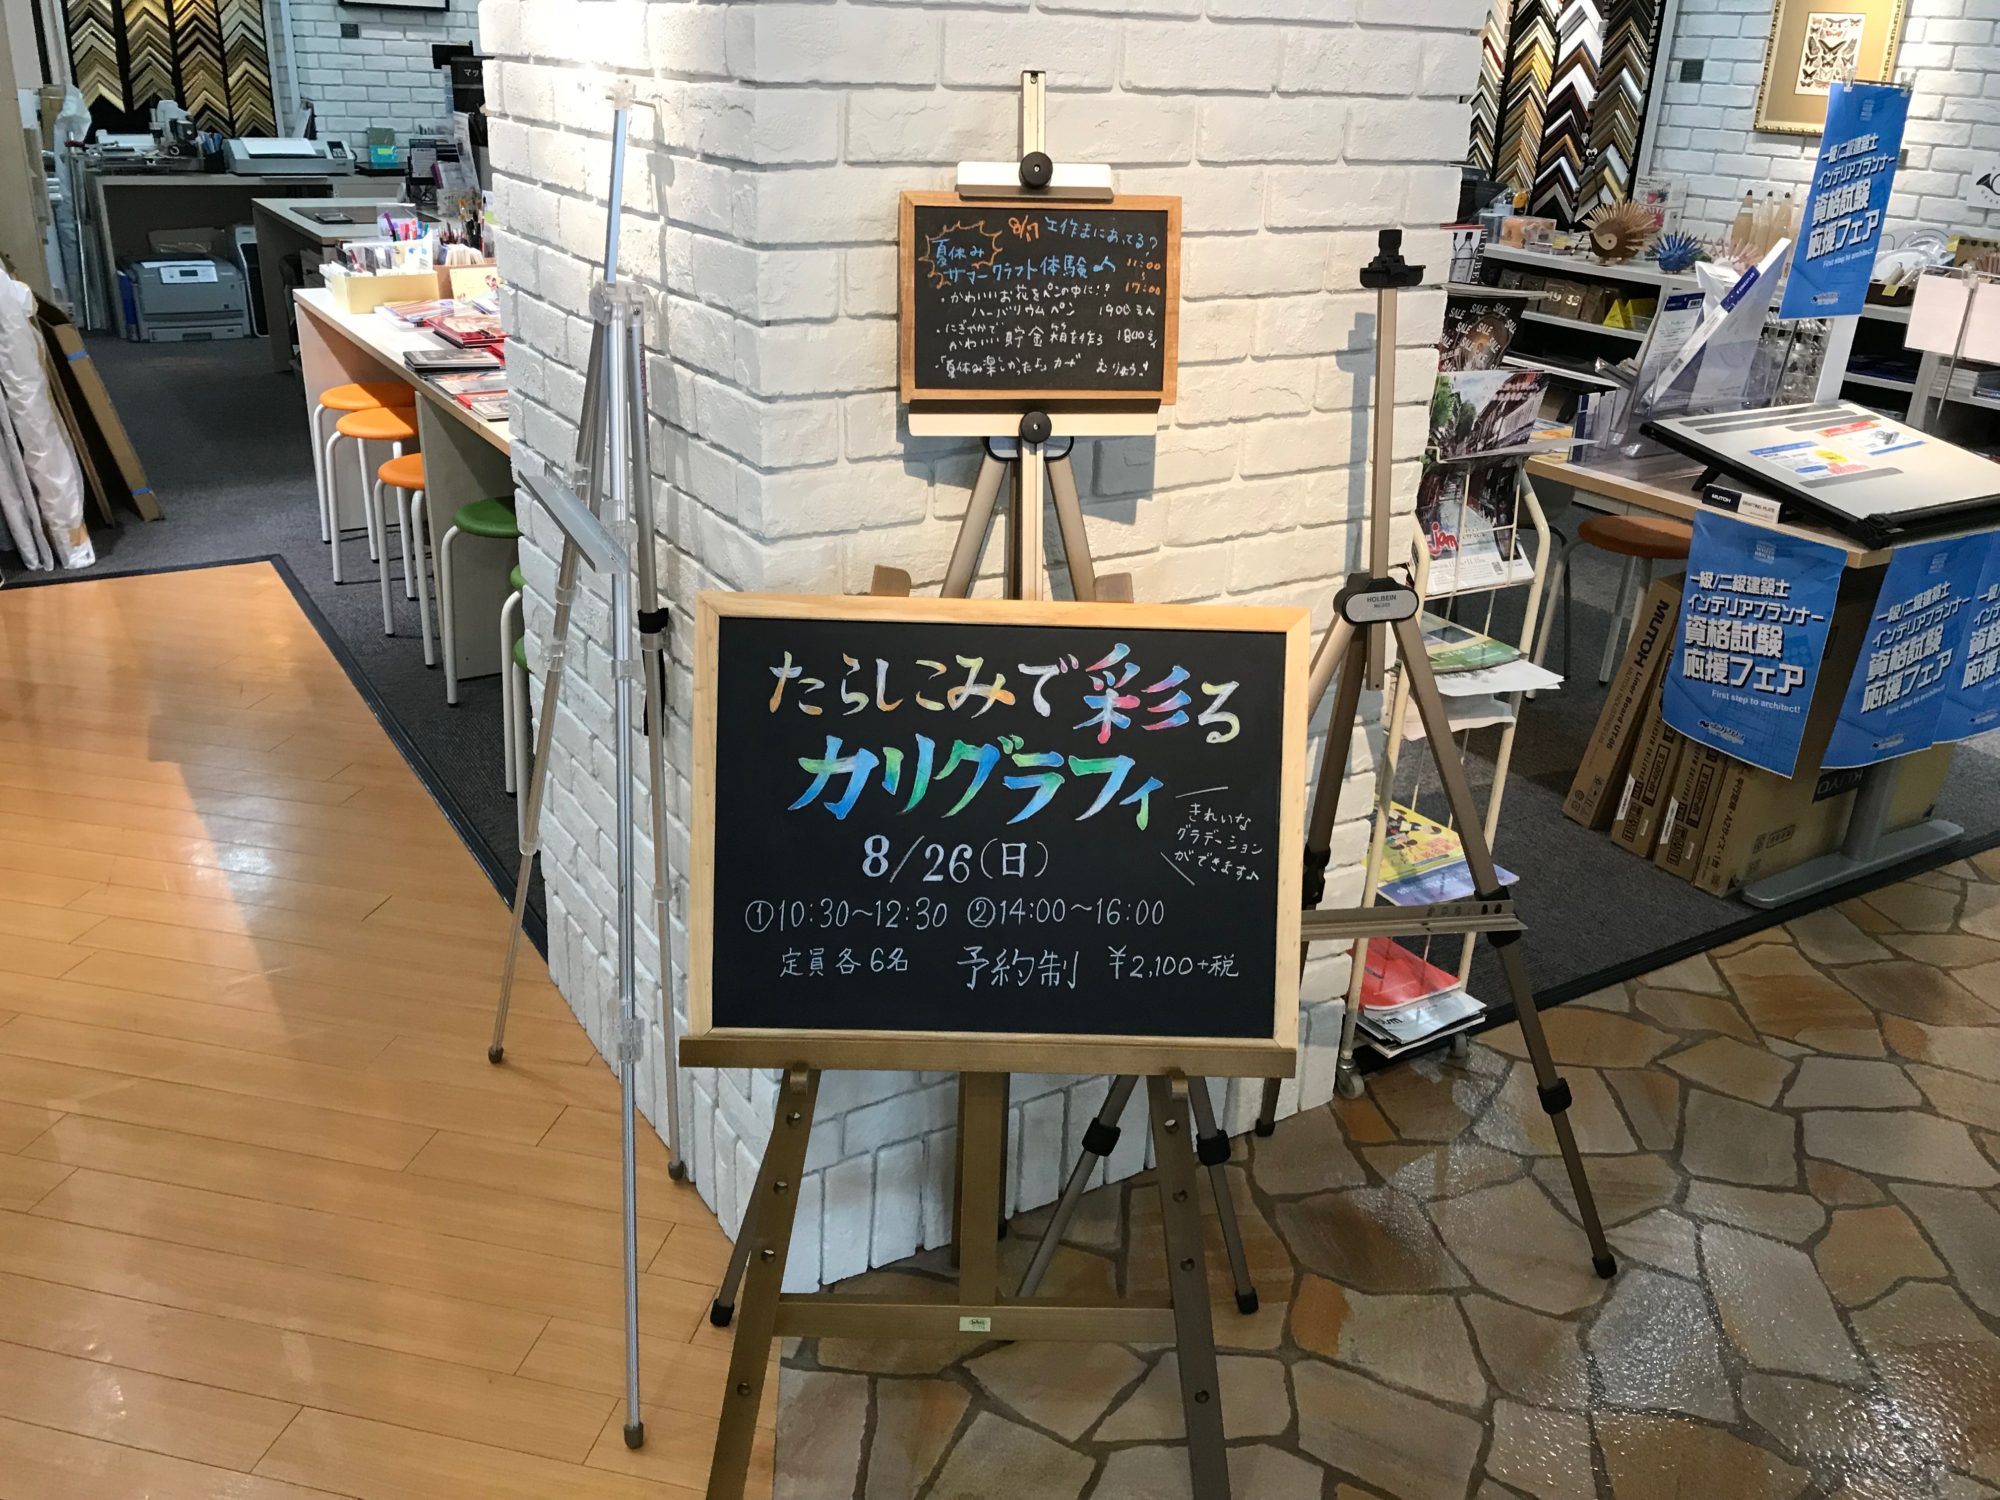 夏休み
8/17 工作まにあってる?
サマークラフト体験♪
11:00
17:00
・かわいいお花をペンの中に!?
ハーバリウムペン 1900えん
・にぎやかで
かわいい貯金箱を作る 1800えん
・「夏休み楽しかったよ」カード むりょう!
たらしこみで彩る
カリグラフィ
8/26(日)
きれいな
グラデーション
ができます♪
①10:30~12:30 ②14:00~16:00
定員各6名 予約制 ¥2,100+税
HOLBEIN
一級/二級建築士
インテリアプランナー
資格試験
応援フェア
First step to architect!
一級/二級建築士
インテリアプランナー
資格試験
応援フェア
First step to architect!
一級/二級建築士
インテリアプランナー
資格試験
応援フェア
First step to architect!
MUTOH
SALE
SALE
jam
MUTOH Liner Board UT-06